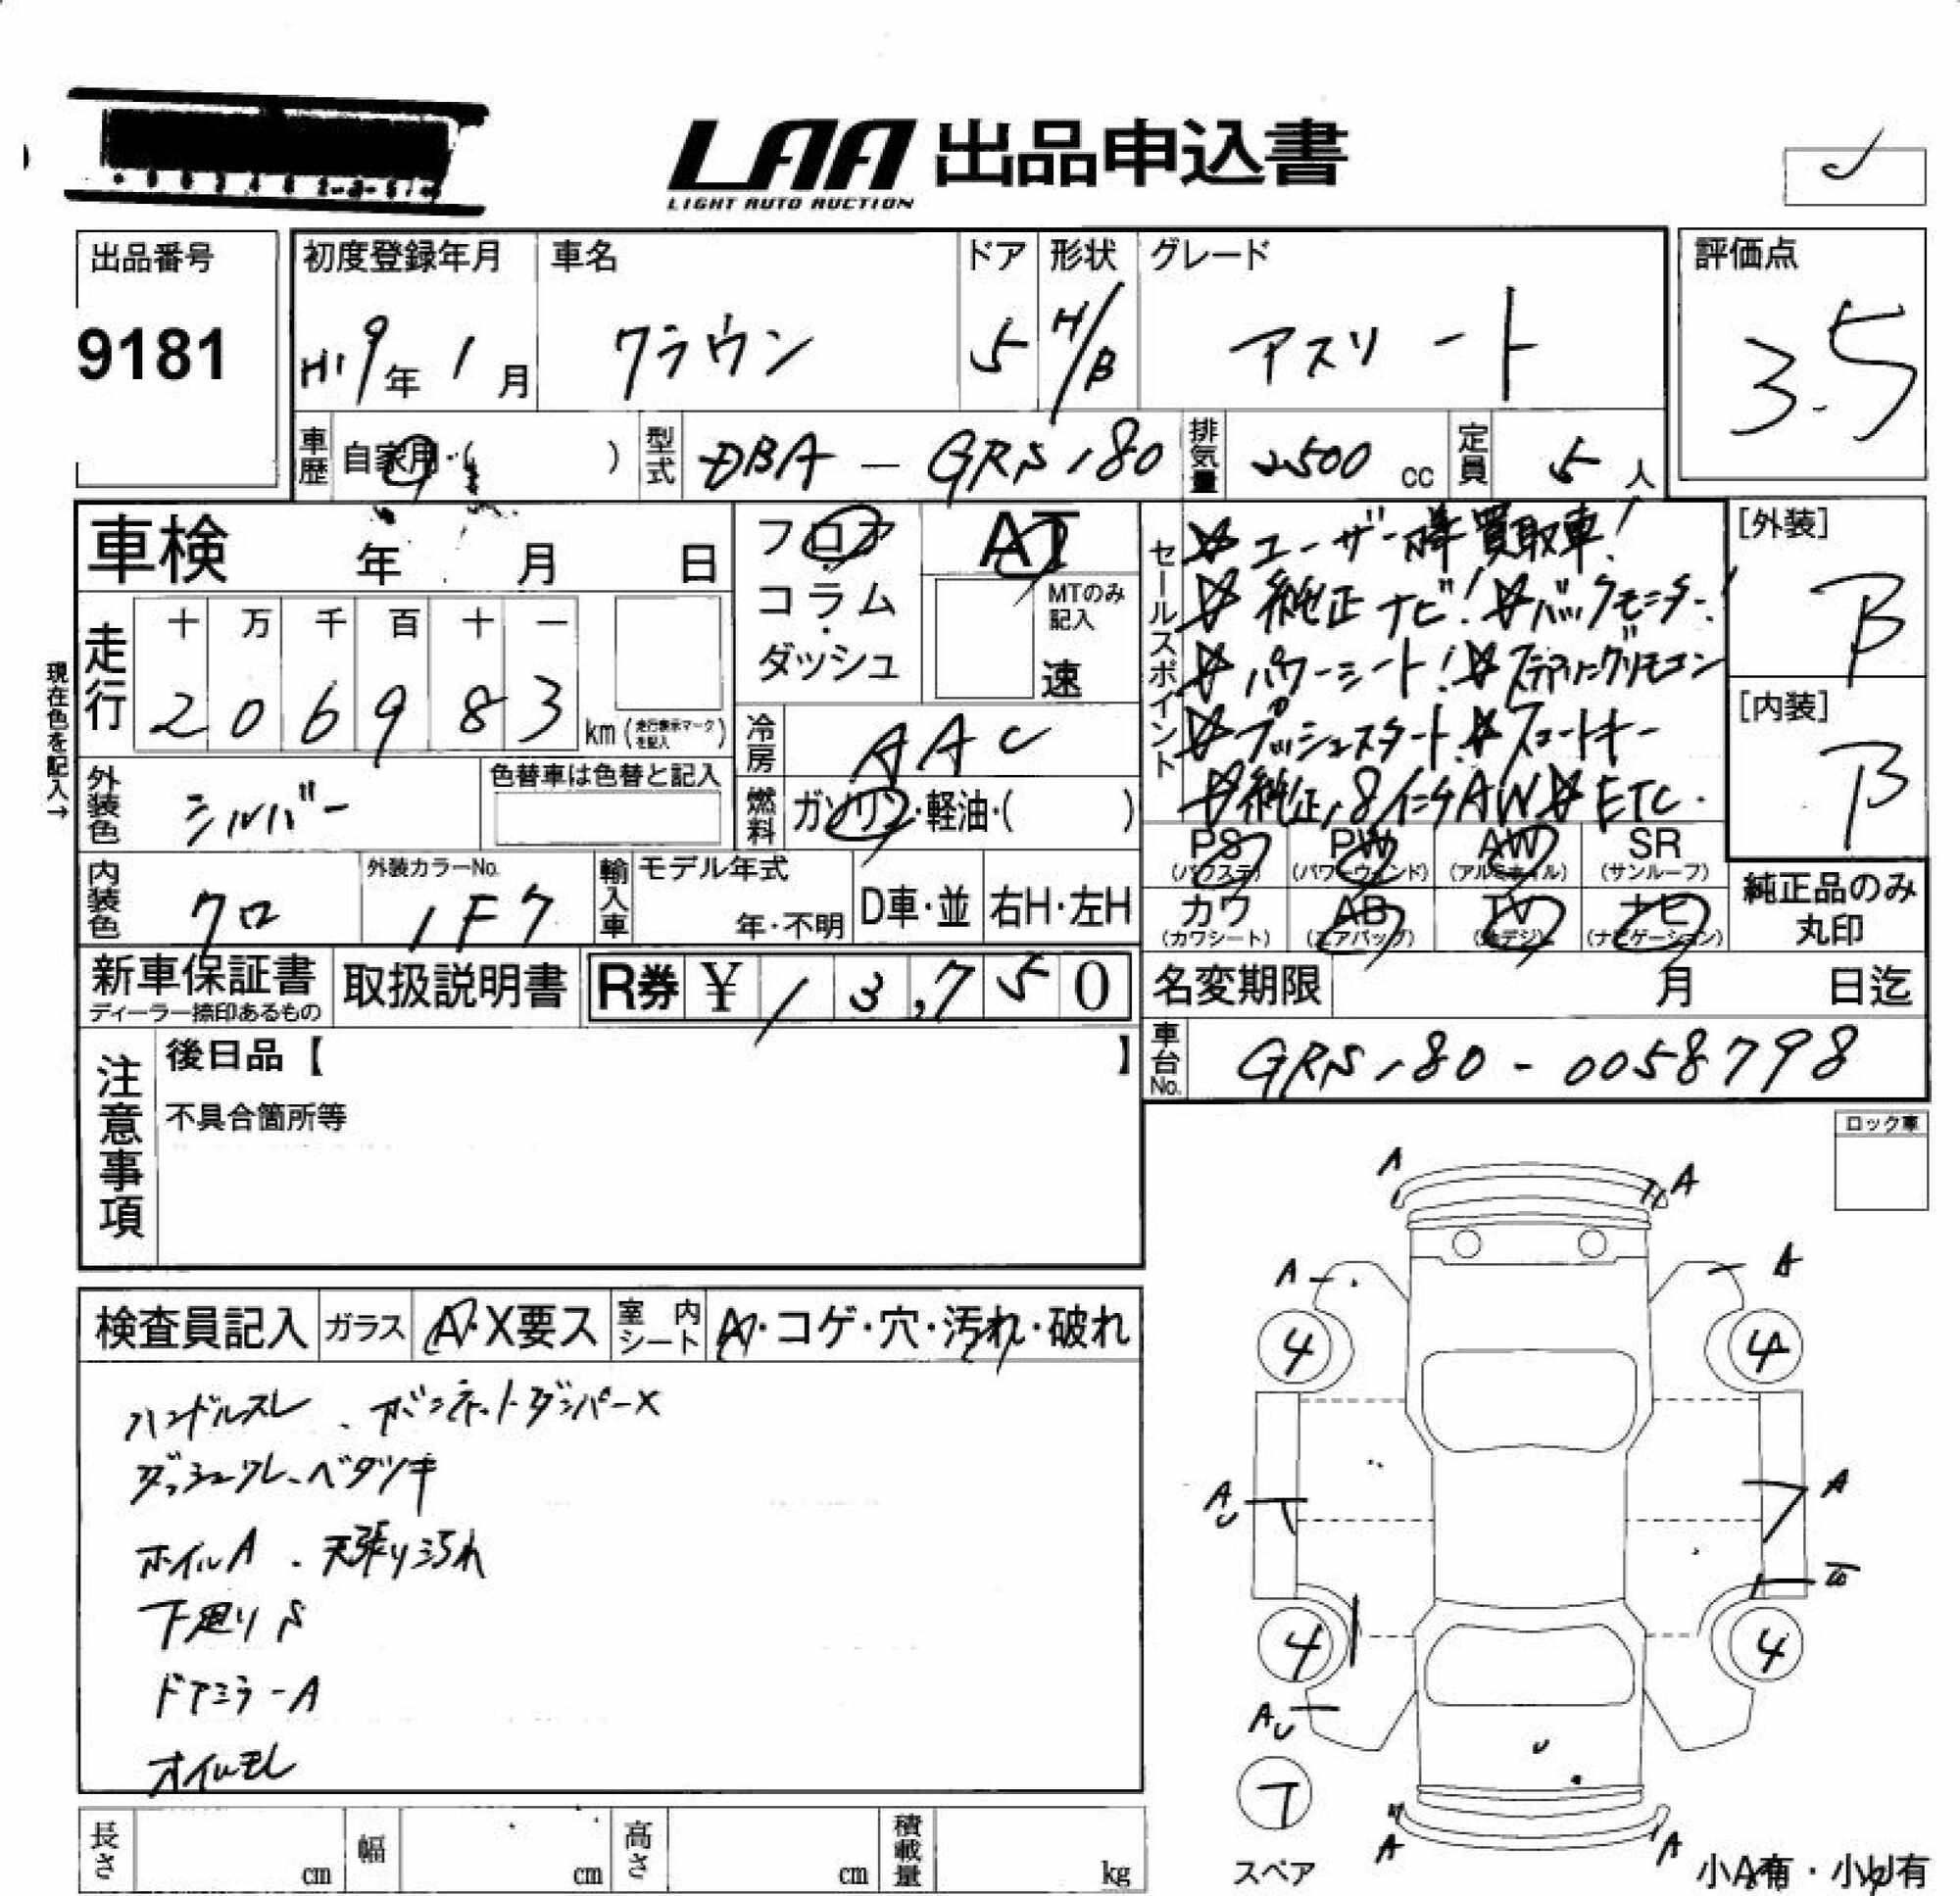 LAA 出品申込書
LIGHT AUTO AUCTION
出品番号
9181
初度登録年月
H19年1月
車名
クラウン
ドア
5
形状
H/B
グレード
アスリート
評価点
3.5
車歴
自家用・( )
型式
DBA-GRS180
排気量
2500 cc
定員
5人
車検 年 月 日
フロア・コラム・ダッシュ
AT
MTのみ記入
速
セールスポイント
☆ユーザー様買取車!
☆純正ナビ!☆バックモニター!
☆パワーシート!☆ステアリングリモコン
☆プッシュスタート☆スマートキー
☆純正18インチAW☆ETC.
[外装]
B
[内装]
B
走行
十 万 千 百 十 一
2 0 6 9 8 3
km(走行表示マークを記入)
現在色を記入→
冷房
AAC
外装色
シルバー
色替車は色替と記入
燃料
ガソリン・軽油・( )
PS
(パワステ)
PW
(パワーウィンド)
AW
(アルミホイル)
SR
(サンルーフ)
カワ
(カワシート)
AB
(エアバッグ)
TV
(地デジ)
ナビ
(ナビゲーション)
純正品のみ
丸印
内装色
クロ
外装カラーNo.
1F7
輸入車
モデル年式
年・不明
D車・並
右H・左H
新車保証書
ディーラー捺印あるもの
取扱説明書
R券 ¥ 13,750
名変期限 月 日迄
車台No.
GRS180-0058798
注意事項
後日品【 】
不具合箇所等
ロック車
検査員記入
ガラス
A・X要ス
室内シート
A・コゲ・穴・汚れ・破れ
ハンドルスレ、ボンネットダンパーX
ダッシュワレ、ベタツキ
ホイルA、天張り汚れ
下廻りS
ドアミラーA
オイルモレ
A A
A A
4 4
AU A
W
4 4
AU
U
T
スペア
A A
小A有・小U有
長さ cm
幅 cm
高さ cm
積載量 kg